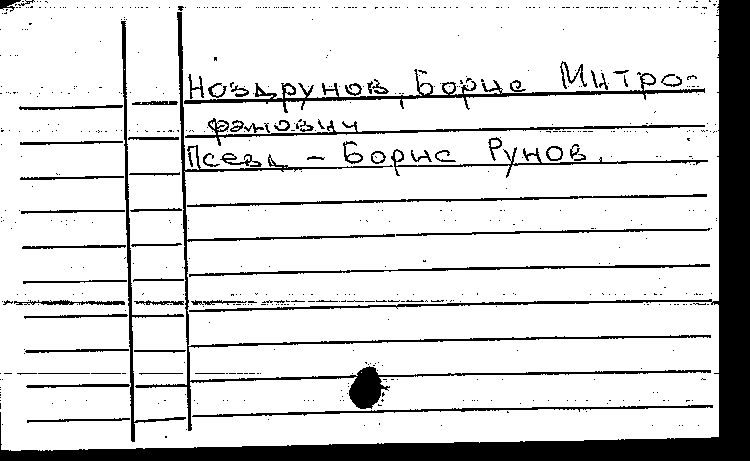 Ноздрунов, Борис Митро-
фанович
Псевд – Борис Рунов.